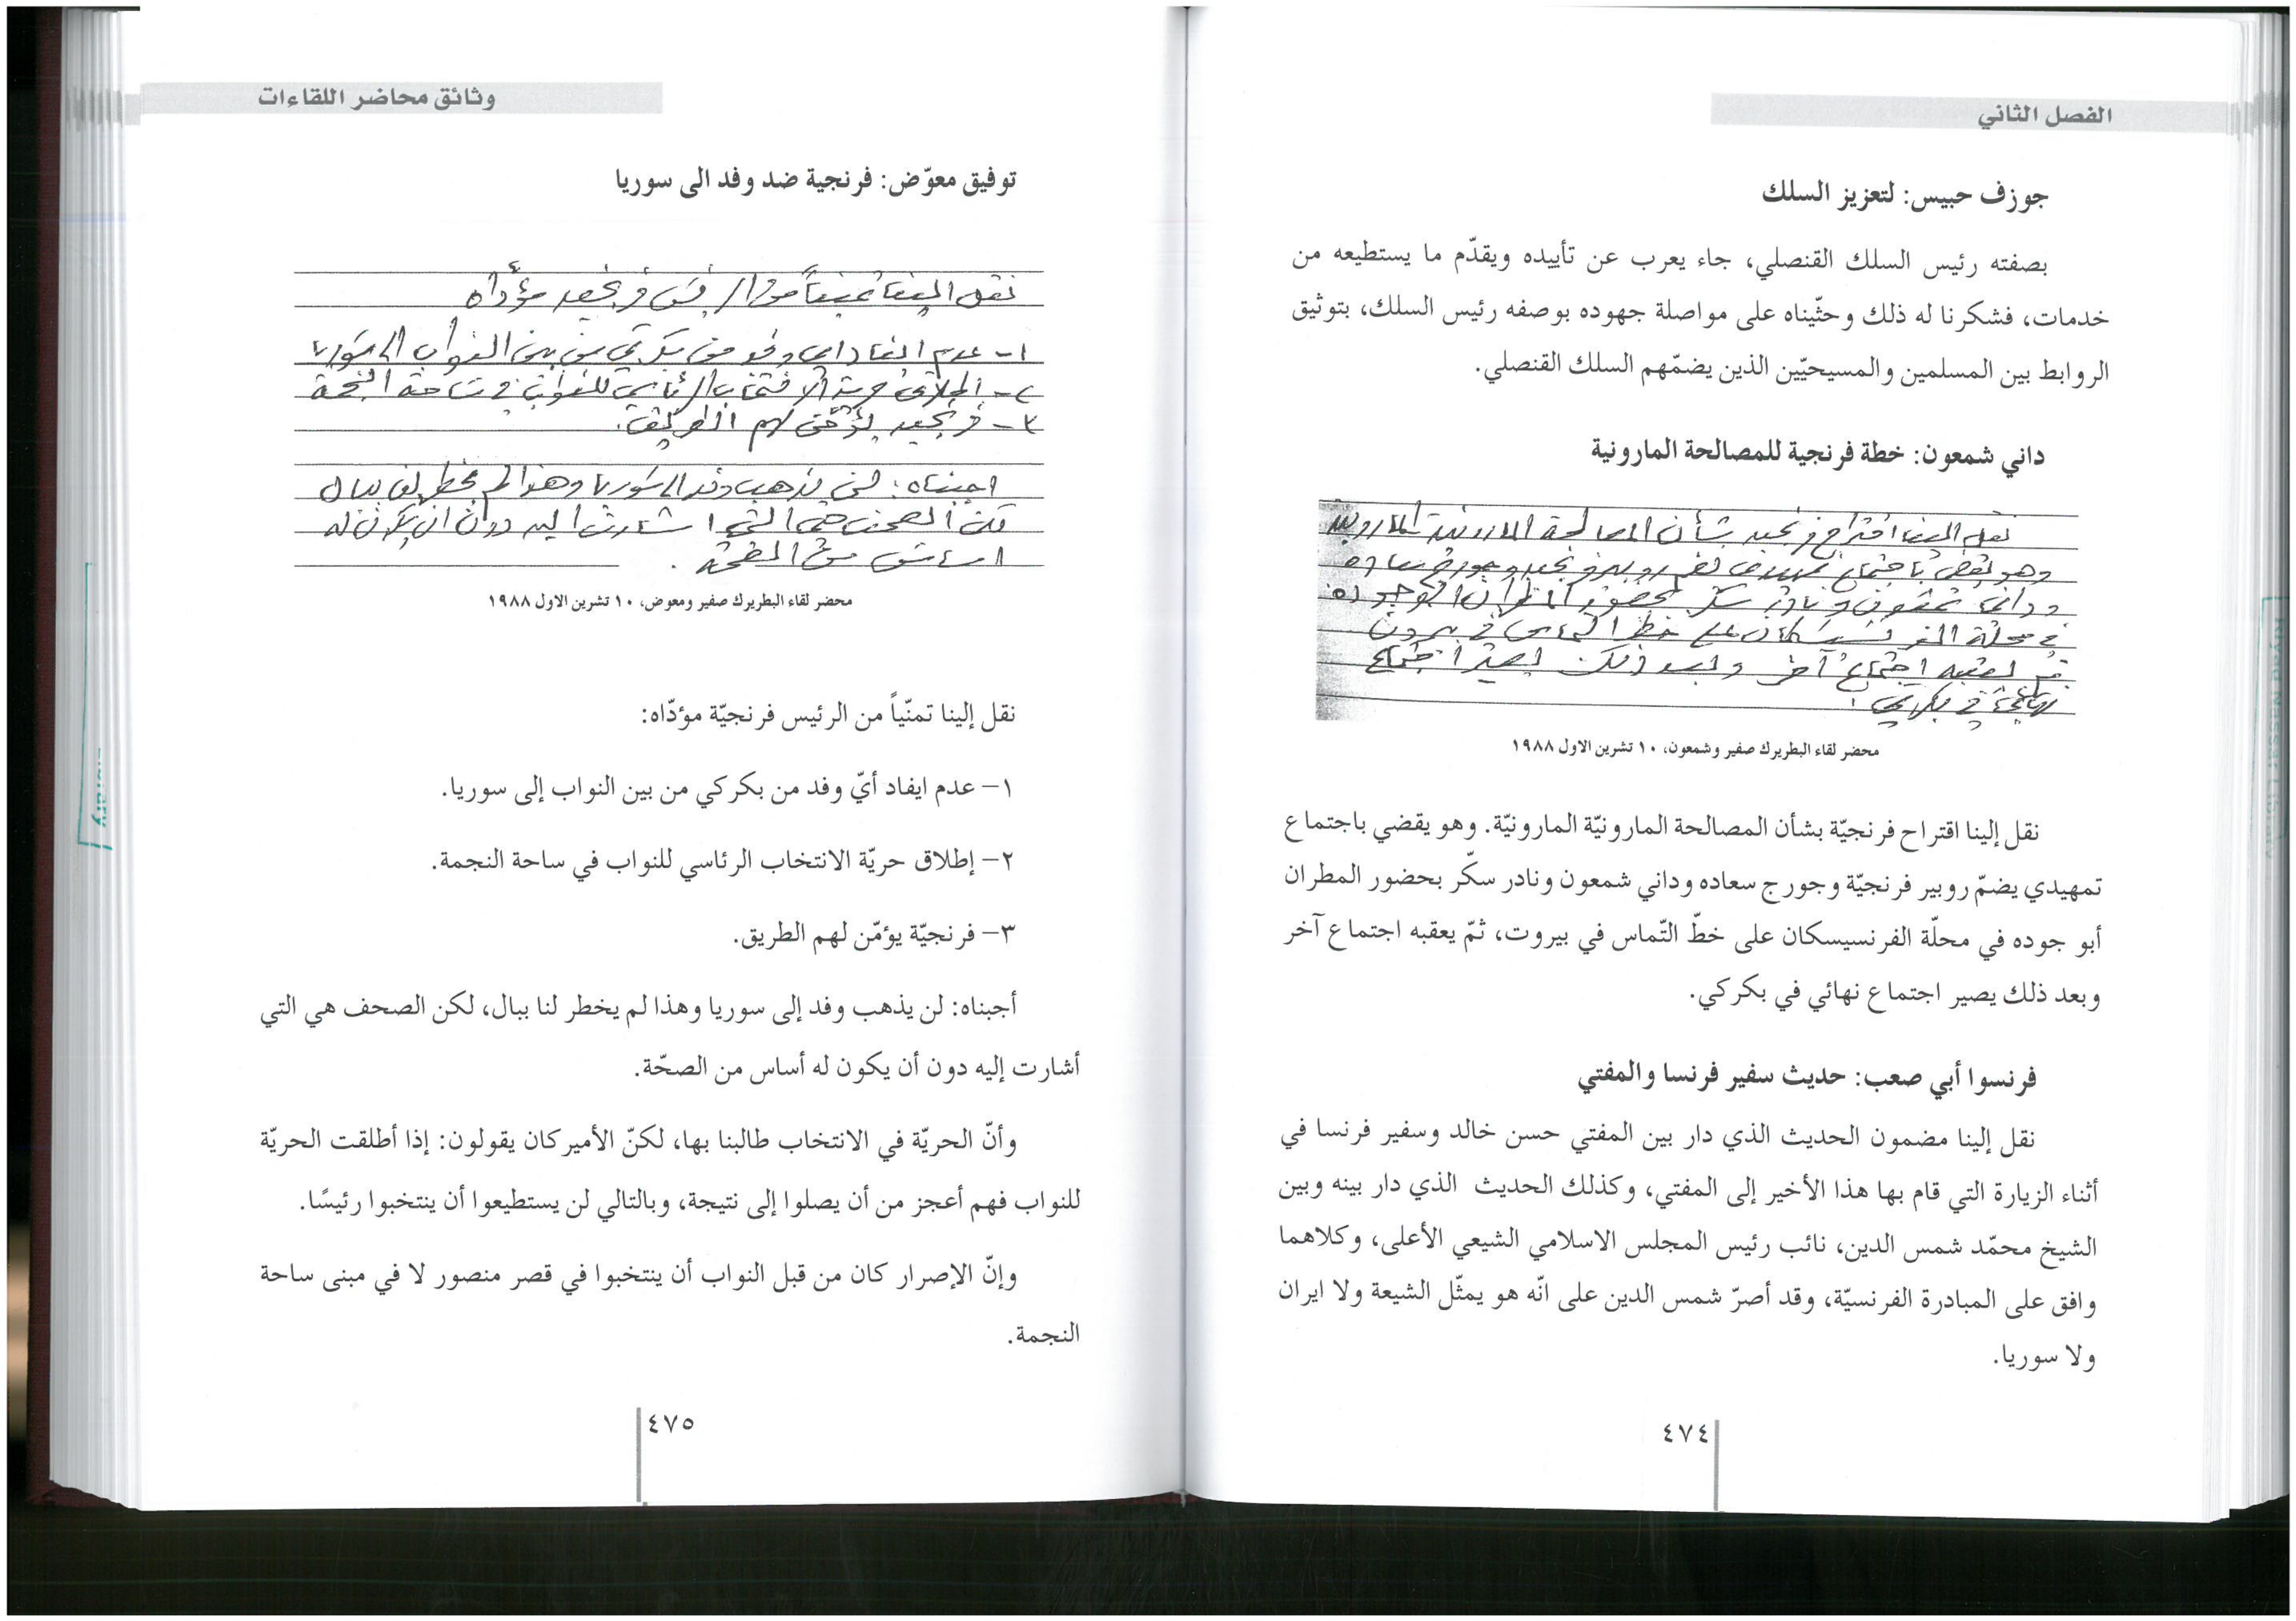 الفصل الثاني
جوزف حبيس: لتعزيز السلك
بصفته رئيس السلك القنصلي، جاء يعرب عن تأييده ويقدّم ما يستطيعه من
خدمات، فشكرنا له ذلك وحثّيناه على مواصلة جهوده بوصفه رئيس السلك، بتوثيق
الروابط بين المسلمين والمسيحيّين الذين يضمّهم السلك القنصلي.
داني شمعون: خطة فرنجية للمصالحة المارونية
نقل الينا اقتراح فرنجيه بشأن المصالحة المارونية المارونية
وهو يقضي باجتماع تمهيدي يضم روبير فرنجيه وجورج سعاده
وداني شمعون ونادر سكر بحضور المطران ابو جوده
في محلة الفرنسيسكان على خط التماس في بيروت
ثم يعقبه اجتماع آخر وبعد ذلك يصير اجتماع
نهائي في بكركي.
محضر لقاء البطريرك صفير وشمعون، ١٠ تشرين الاول ١٩٨٨
نقل إلينا اقتراح فرنجيّة بشأن المصالحة المارونيّة المارونيّة. وهو يقضي باجتماع
تمهيدي يضمّ روبير فرنجيّة وجورج سعاده وداني شمعون ونادر سكّر بحضور المطران
أبو جوده في محلّة الفرنسيسكان على خطّ التّماس في بيروت، ثمّ يعقبه اجتماع آخر
وبعد ذلك يصير اجتماع نهائي في بكركي.
فرنسوا أبي صعب: حديث سفير فرنسا والمفتي
نقل إلينا مضمون الحديث الذي دار بين المفتي حسن خالد وسفير فرنسا في
أثناء الزيارة التي قام بها هذا الأخير إلى المفتي، وكذلك الحديث الذي دار بينه وبين
الشيخ محمّد شمس الدين، نائب رئيس المجلس الاسلامي الشيعي الأعلى، وكلاهما
وافق على المبادرة الفرنسيّة، وقد أصرّ شمس الدين على انّه هو يمثّل الشيعة ولا ايران
ولا سوريا.
٤٧٤
وثائق محاضر اللقاءات
توفيق معوّض: فرنجية ضد وفد الى سوريا
نقل الينا تمنياً من الرئيس فرنجيه مؤدّاه
١- عدم ايفاد اي وفد من بكركي من بين النواب الى سوريا
٢- اطلاق حرية الانتخاب الرئاسي للنواب في ساحة النجمة
٣- فرنجيه يؤمّن لهم الطريق.
اجبناه: لن يذهب وفد الى سوريا وهذا لم يخطر لنا ببال
لكن الصحف هي التي اشارت اليه دون ان يكون له
اساس من الصحّة.
محضر لقاء البطريرك صفير ومعوض، ١٠ تشرين الاول ١٩٨٨
نقل إلينا تمنّياً من الرئيس فرنجيّة مؤدّاه:
١- عدم ايفاد أيّ وفد من بكركي من بين النواب إلى سوريا.
٢- إطلاق حريّة الانتخاب الرئاسي للنواب في ساحة النجمة.
٣- فرنجيّة يؤمّن لهم الطريق.
أجبناه: لن يذهب وفد إلى سوريا وهذا لم يخطر لنا ببال، لكن الصحف هي التي
أشارت إليه دون أن يكون له أساس من الصحّة.
وأنّ الحريّة في الانتخاب طالبنا بها، لكنّ الأميركان يقولون: إذا أطلقت الحريّة
للنواب فهم أعجز من أن يصلوا إلى نتيجة، وبالتالي لن يستطيعوا أن ينتخبوا رئيسًا.
وإنّ الإصرار كان من قبل النواب أن ينتخبوا في قصر منصور لا في مبنى ساحة
النجمة.
٤٧٥